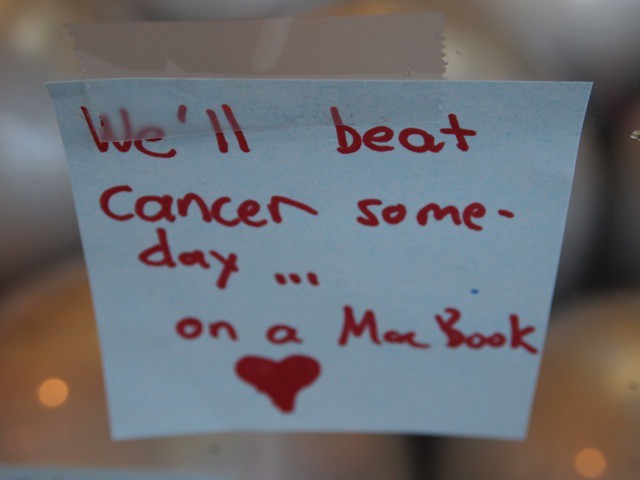 We'll beat
cancer some-
day ...
on a MacBook